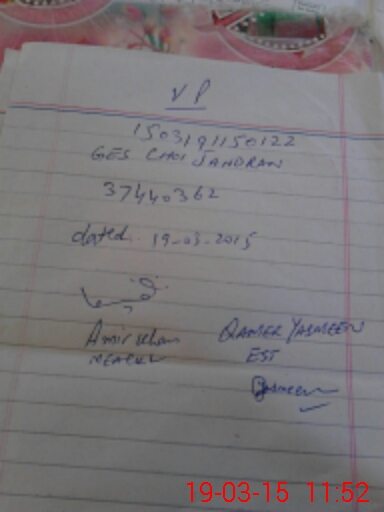 VP
1503191150122
GES CHOI JANDRAN
37440362
dated. 19-03-2015
Amir khan
QAMER YASMEEN
EST
Yasmeen
19-03-15 11:52